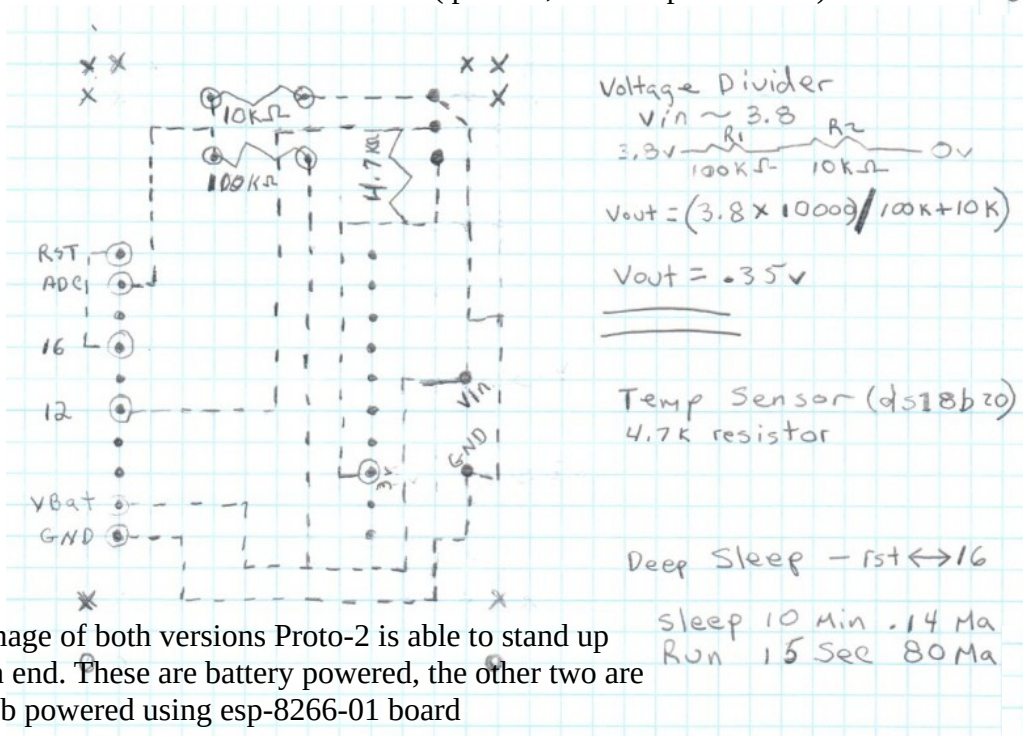 10KΩ
100KΩ
4.7KΩ
RST
ADC
16
12
VBat
GND
Vin
GND
3v
Voltage Divider
Vin ~ 3.8
R1 R2
3.8v 0v
100KΩ 10KΩ
Vout = (3.8 × 10000)/100K+10K)
Vout = .35v
Temp Sensor (ds18b20)
4.7K resistor
Deep Sleep – rst ↔ 16
Sleep 10 Min .14 Ma
Run 15 Sec 80 Ma
nage of both versions Proto-2 is able to stand up
n end. These are battery powered, the other two are
b powered using esp-8266-01 board